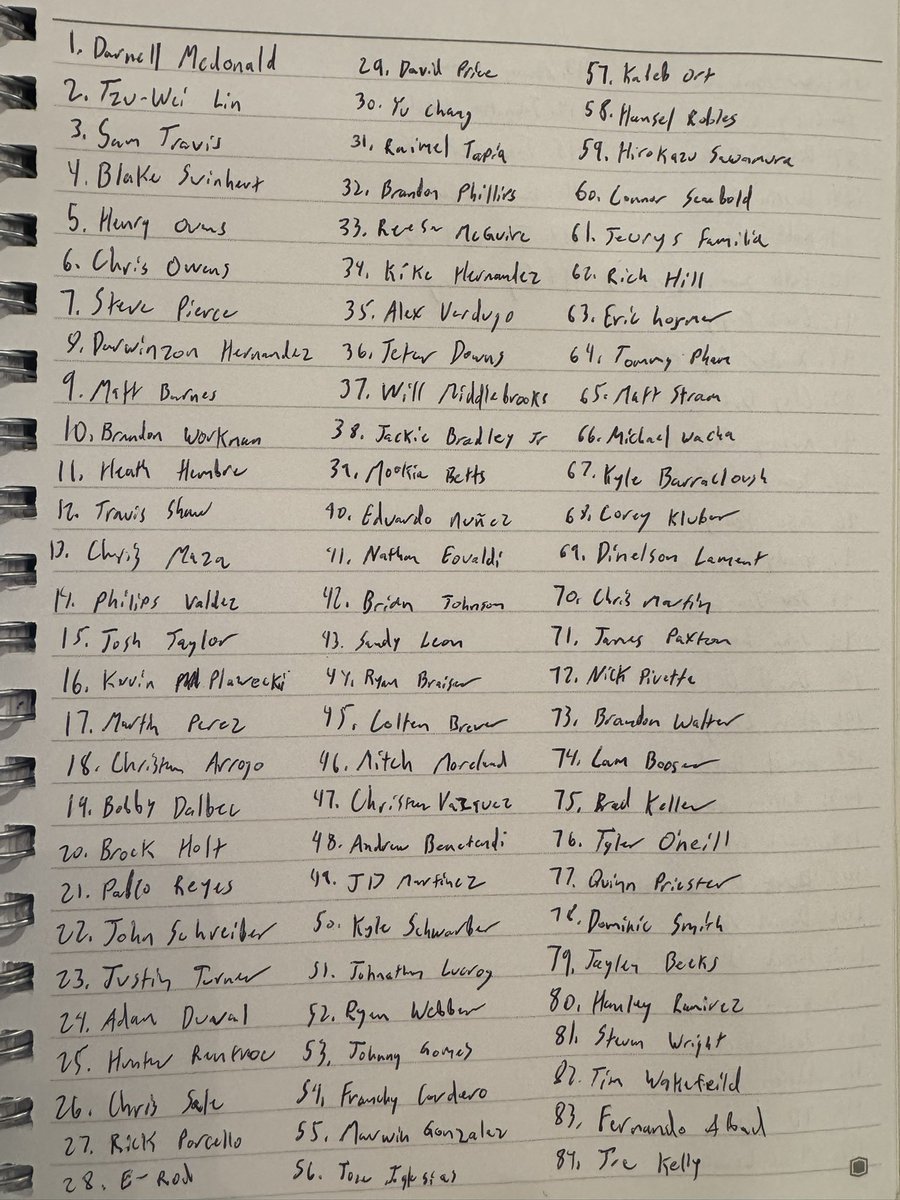 1. Darnell Mcdonald
2. Tzu-Wei Lin
3. Sam Travis
4. Blake Swinhert
5. Henry Owens
6. Chris Owens
7. Steve Pierce
8. Darwinzon Hernandez
9. Matt Barnes
10. Brandon Workman
11. Heath Hembre
12. Travis Shaw
13. Chris Maza
14. Philips Valdez
15. Josh Taylor
16. Kevin Plawecki
17. Martin Perez
18. Christian Arroyo
19. Bobby Dalbec
20. Brock Holt
21. Pablo Reyes
22. John Schreiber
23. Justin Turner
24. Adam Duval
25. Hunter Renfroe
26. Chris Sale
27. Rick Porcello
28. E-Rod
29. David Price
30. Yu Chang
31. Raimel Tapia
32. Brandon Phillips
33. Reese McGuire
34. Kike Hernandez
35. Alex Verdugo
36. Jeter Downs
37. Will Middlebrooks
38. Jackie Bradley Jr
39. Mookie Betts
40. Eduardo Nuñez
41. Nathan Eovaldi
42. Brian Johnson
43. Sandy Leon
44. Ryan Braiser
45. Colten Brewer
46. Mitch Moreland
47. Christian Vazquez
48. Andrew Benetendi
49. JD Martinez
50. Kyle Schwarber
51. Johnathan Lucroy
52. Ryan Webber
53. Johnny Gomes
54. Franchy Cordero
55. Marwin Gonzalez
56. Jose Iglesias
57. Kaleb Ort
58. Hansel Robles
59. Hirokazu Sawamura
60. Connor Seabold
61. Jeurys Familia
62. Rich Hill
63. Eric hosmer
64. Tommy Pham
65. Matt Stram
66. Michael wacha
67. Kyle Barraclough
68. Corey Kluber
69. Dinelson Lament
70. Chris Martin
71. James Paxton
72. Nick Pivetta
73. Brandon Walter
74. Cam Booser
75. Brad Keller
76. Tyler O'neill
77. Quinn Priester
78. Dominic Smith
79. Jaylen Beeks
80. Hanley Ramirez
81. Steven Wright
82. Tim Wakefeild
83. Fernando Abad
84. Joe Kelly